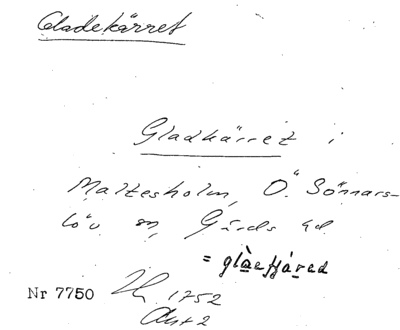 Gladekärret
Gladkärret i
Maltesholm, Ö. Sönnars-
löv sn, Gärds hd
= glàefjáred
Nr 7750 1752
Akt 2